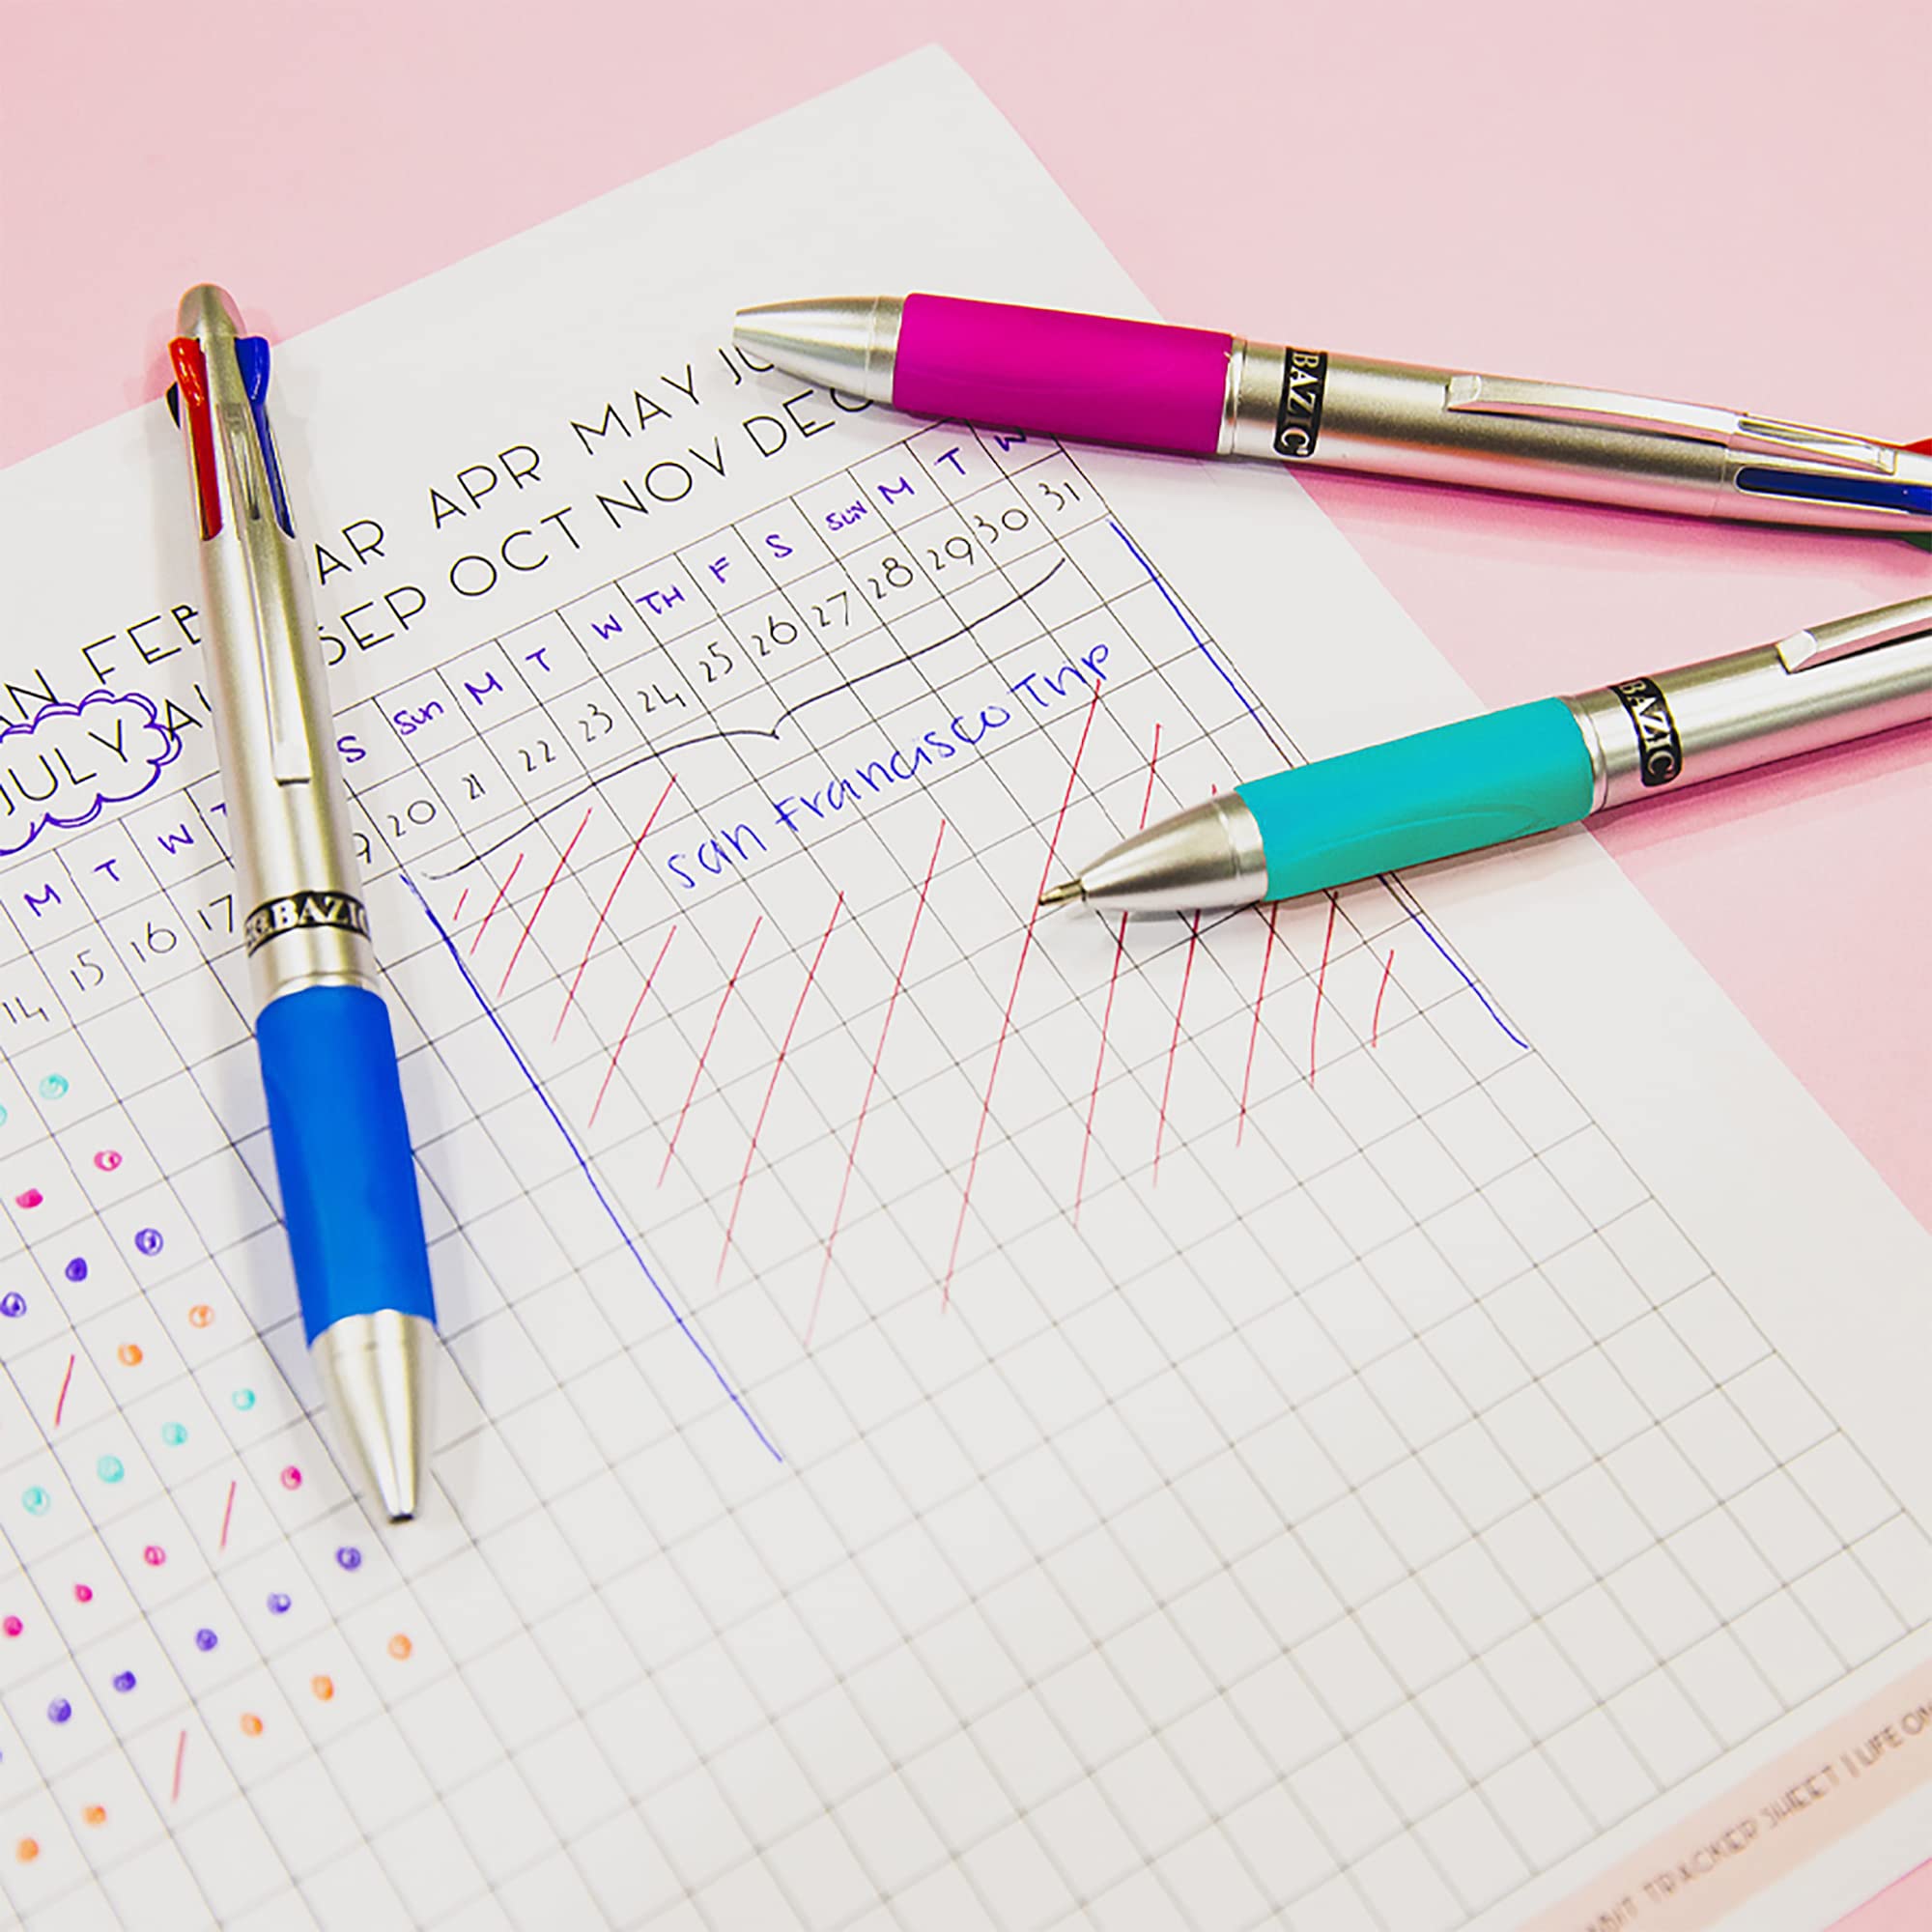 APR MAY
SEP OCT NOV DEC
JULY
M T W S Sun M T W TH F S SUN M T W
14 15 16 17 20 21 22 23 24 25 26 27 28 29 30 31
San Francisco Trip
BAZIC
BAZIC
BAZIC
TRACKER SHEET | LIFE